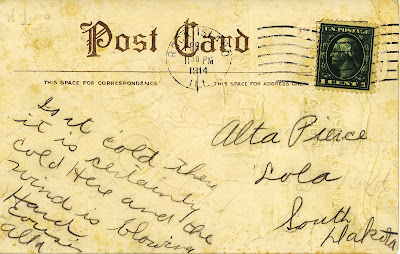 Post Card
11 30 PM
1914
ILL.
U.S. POSTAGE
1 CENT 1
THIS SPACE FOR CORRESPONDENCE
THIS SPACE FOR ADDRESS ONLY
Is it cold there
it is certainly
cold Here and the
wind is blowing
Hard
cousin
alta
Alta Pierce
Lola
South
Dakota